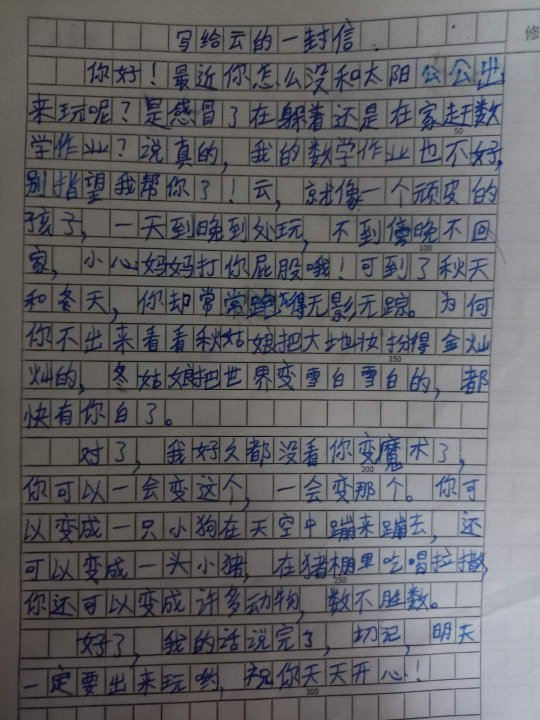 写给云的一封信.
你好！最近你怎么没和太阳公公出
来玩呢？是感冒了在躲着还是在家赶数
50
学作业？说真的，我的数学作业也不好，
别指望我帮你了！云，就像一个顽皮的
孩子，一天到晚到处玩，不到傍晚不回
100
家，小心妈妈打你屁股哦！可到了秋天
和冬天，你却常常跑得无影无踪。为何
你不出来看看秋姑娘把大地妆扮得金灿
150
灿的，冬姑娘把世界变雪白雪白的，都
快有你白了。
对了，我好久都没看你变魔术了，
200
你可以一会变这个，一会变那个。你可
以变成一只小狗在天空中蹦来蹦去，还
可以变成一头小猪，在猪棚里吃喝拉撒，
250
你还可以变成许多动物，数不胜数。
好了，我的话说完了，切记，明天
一定要出来玩哟，祝你天天开心！
300